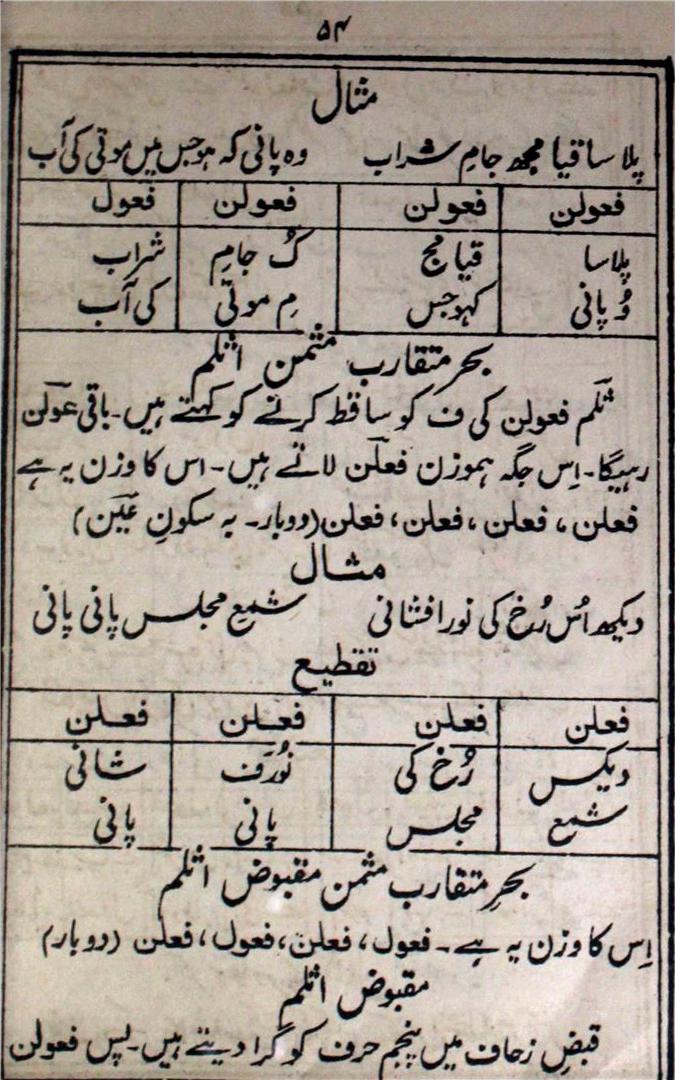 ۵۴
مثال
پلا ساقیا مجھ جامِ شراب وہ پانی کہ ہو جس میں موتی کی آب
فعولن فعولن فعولن فعول
پلاسا قیا مج کُ جامِ شراب
وُ پانی کہو جس مِ موتی کی آب
بحر متقارب مثمن اثلم
ثلم فعولن کی ف کو ساقط کرنے کو کہتے ہیں۔ باقی عولن
رہیگا۔ اِس جگہ ہموزن فعلن لاتے ہیں۔ اس کا وزن یہ ہے
فعلن، فعلن، فعلن، فعلن (دوبار۔ بہ سکونِ عین)
مثال
دیکھ اُس رُخ کی نور افشانی شمعِ مجلس پانی پانی
تقطیع
فعلن فعلن فعلن فعلن
دیکس رُخ کی نُورَف شانی
شمع مجلس پانی پانی
بحرِ متقارب مثمن مقبوض اثلم
اِس کا وزن یہ ہے۔ فعول، فعلن، فعول، فعلن (دوبار)
مقبوض اثلم
قبضِ زحاف میں پنجم حرف کو گرا دیتے ہیں۔ پس فعولن